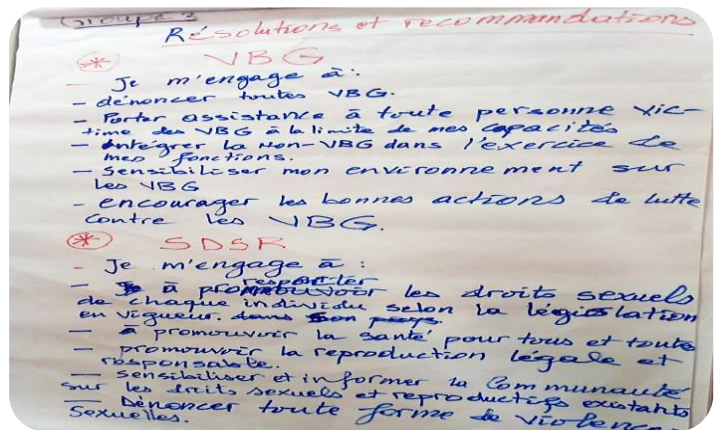 Groupe 3
Résolutions et recommandations
* VBG
- Je m'engage à :
- dénoncer toutes VBG.
- Porter assistance à toute personne vic-
time des VBG à la limite de mes capacités
- intégrer la non-VBG dans l'exercice de
mes fonctions.
- sensibiliser mon environnement sur
les VBG
- encourager les bonnes actions de lutte
contre les VBG.
* SDSR
- Je m'engage à :
respecter
- à promouvoir les droits sexuels
de chaque individu selon la législation
en vigueur. dans son pays.
- à promouvoir la santé pour tous et toutes
- promouvoir la reproduction légale et
responsable.
- sensibiliser et informer la communauté
sur les droits sexuels et reproductifs existants
- Dénoncer toute forme de violence
sexuelles.